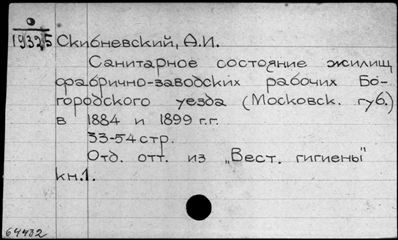 19325 Скибневский, А.И.
Санитарное состояние жилищ
фабрично-заводских рабочих Бо-
городского уезда (Московск. губ.)
в 1884 и 1899 г.г.
33-54 стр.
Отд. отт. из „Вест. гигиены"
кн.1.
64432